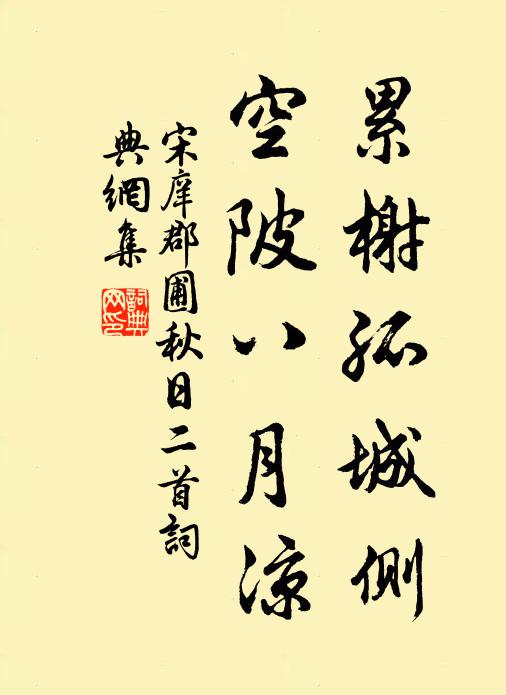 累榭孤城側
空陂八月凉
宋庠郡圃秋日二首詞
典網集
詞典
网印